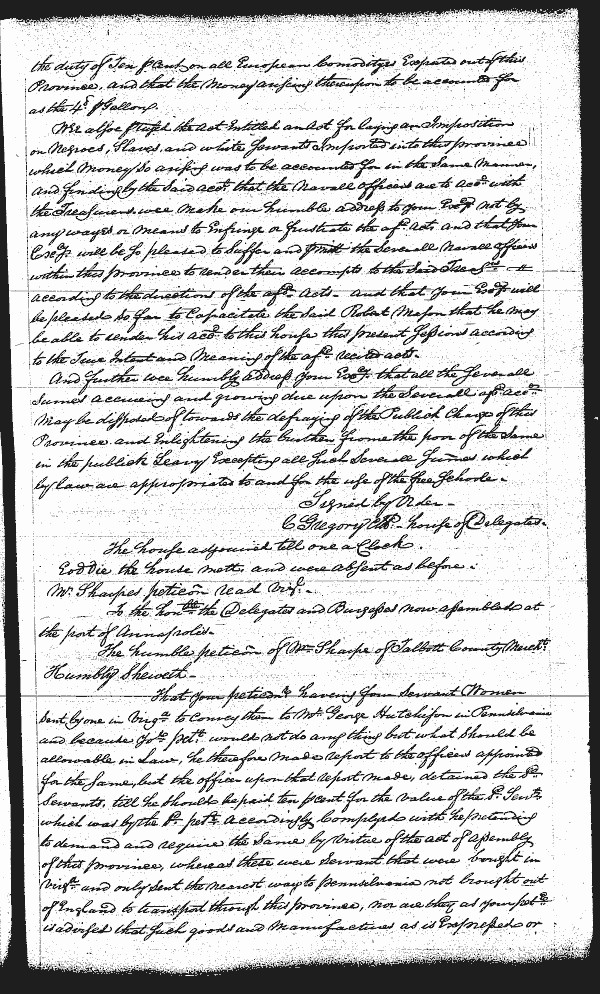 the duty of Ten p Cent on all European Comoditys Exported out of this
Province, and that the Money arising thereupon to be accounted for
as the 4d p Gallon.
Wee alsoe p the Act Entitled an Act for laying an Imposition
on Negroes, Slaves, and white Servants Imported into this province
which Money So arising was to be accounted for in the Same Manner,
And finding by the Said act, that the Navall Officers are to acct with
the Treasurers. wee make our humble address to your Excy not by
any wayes or Means to Enfringe or frustrate the afd Act and that your
Excy will be So pleased to Suffer and the Severall Navall officers
within this province to render their accompts to the Said
according to the directions of the afd Acts. And that your Excy will
be pleased So far to Capacitate the Said Robert Mason that he may
be able to render his acct to this house this present Sessions according
to the True Intent and Meaning of the afd recited acts.
And further wee humbly address your Excy that all the Severall
Sumes accrueing and growing due upon the Severall afd accts
May be disposed of towards the defraying of the Publick Charge of this
Province and Enlightening the burthen frome the poor of the Same
in the publick Leavy Excepting all Such Severall Sumes which
by law are appropriated to and for the use of the free Schools.
Signed by Order.
C Gregory Clk. house of Delegates.
The house adjourned till one a Clock.
Eod Die the house mett and were absent as before.
Mr Sharpes peticon read vizt.
To the honble the Delegates and Burgesses now assembled at
the port of Annapolis.
The humble peticon of Wm Sharpe of Talbott County Mercht
Humbly Sheweth.
That your peticonr having four Servant Women
Sent by one in Virga to Convey them to Mr George Hutchison in Pennsilvania
and because yor petr would not do any thing but what Should be
allowable in Law, he therefore made report to the officer appoined
for the Same, but the officer upon that report made, detained the Sd
Servants, till he Should be paid ten p cent for the value of the Sd Servts
which was by the Sd petr accordingly Complyed with he pretending
to demand and require the Same by virtue of the act of Assembly
of this province, whereas these were Servant that were bought in
Virga and only Sent the nearest way to Pennsilvania not brought out
of England to transport through this province, nor are they as your petr
is advised that Such goods and Manufactures as is Expressed or